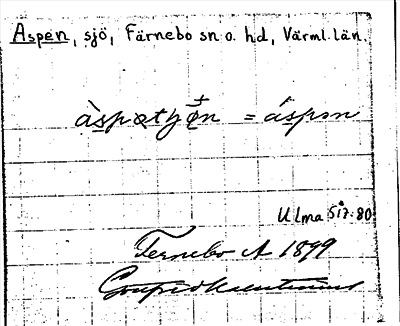 Aspen, sjö, Färnebo sn o. hd, Värml. län.
àspætjøn = áspən
Ulma 517:80
Fernebo A 1899